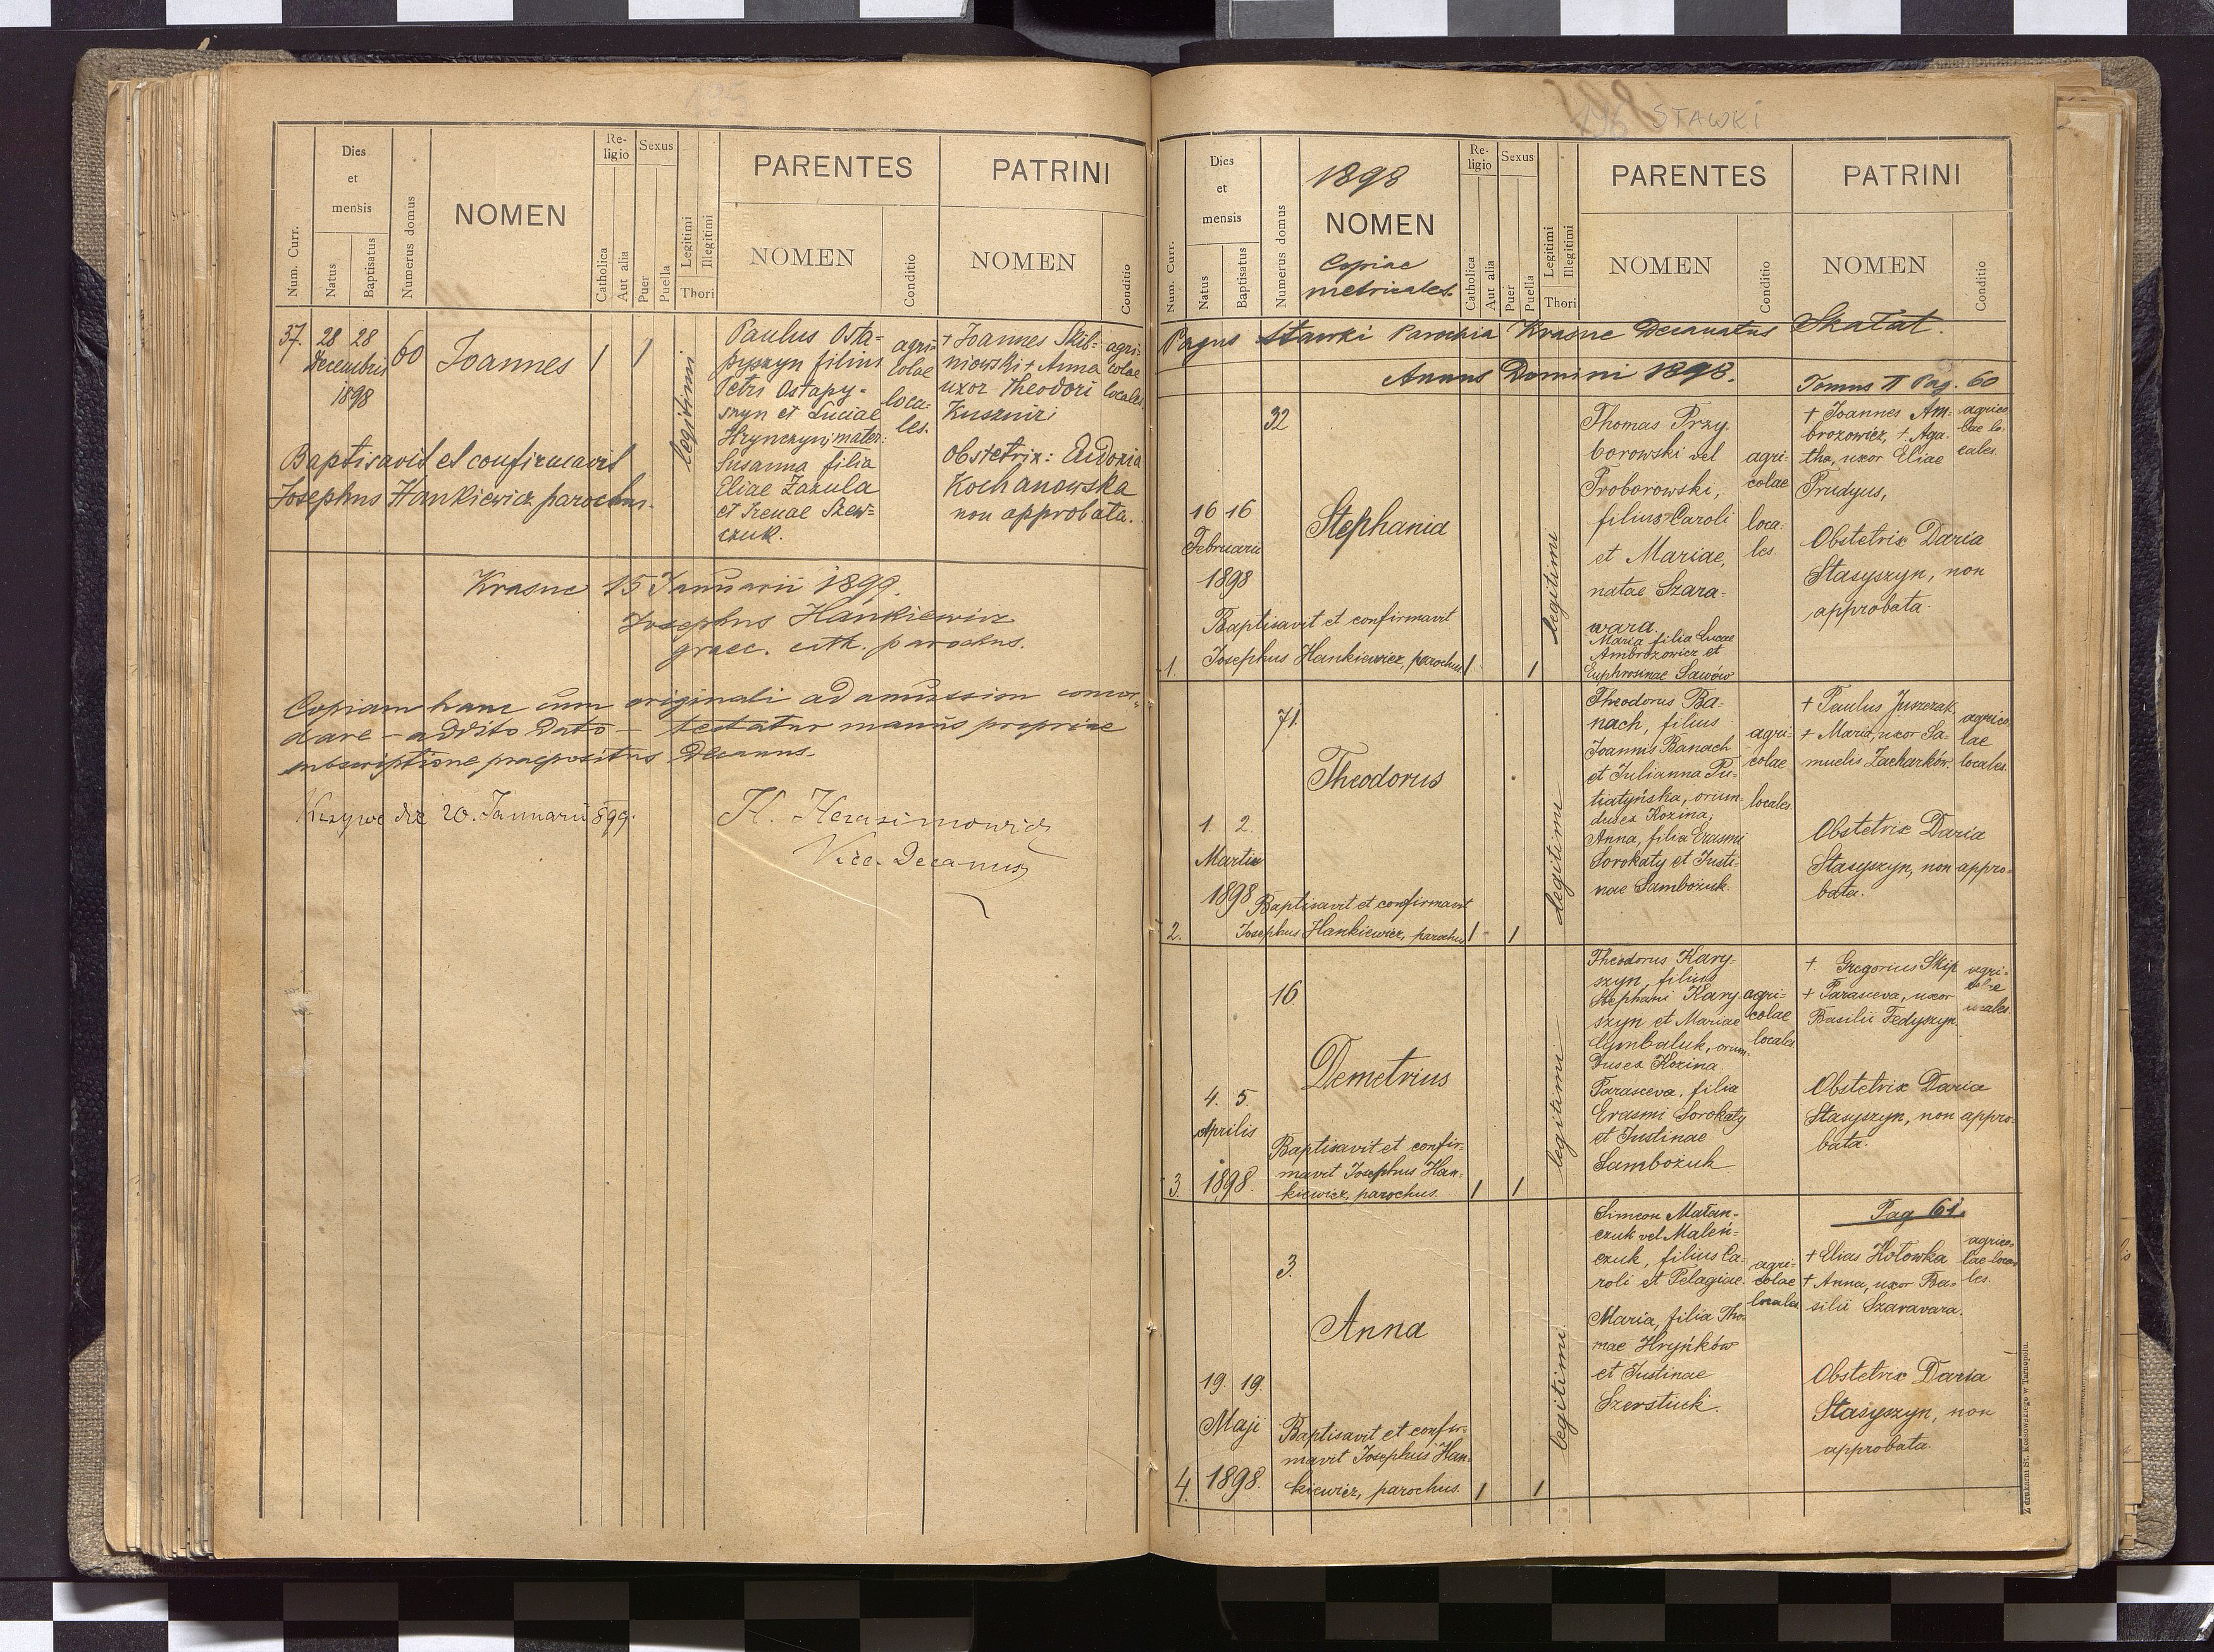 195
Dies
et
mensis
Re-
ligio
Sexus
PARENTES
PATRINI
Num. Curr.
Natus
Baptisatus
Numerus domus
NOMEN
Catholica
Aut alia
Puer
Puella
Legitimi
Illegitimi
Thori
NOMEN
Conditio
NOMEN
Conditio
37.
28 28
Decembris
1898
60
Joannes
1
1
legitimi
Paulus Osta-
pyszyn filius
Petri Ostapy-
szyn et Luciae
Hrynczyn; mater:
Susanna filia
Eliae Zazula
et Irenae Szew-
czuk.
agri-
colae
loca-
les.
+ Joannes Skib-
niowski + Anna
uxor Theodori
Kuszniri
agri-
colae
locales.
Obstetrix: Eudoxia
Kochanowska
non approbata.
Baptisavit et confirmavit
Josephus Hankiewicz parochus.
Krasne 15 Januarii 1899.
Josephus Hankiewicz
graec. cath. parochus.
Copiam hanc cum originali ad amussim concor-
dare - addito dato - testatur manus propriae
subscriptione praepositus Decanus.
20. Januarii 899.
H. Herasimowicz
Vice Decanus
196 STAWKI
Dies
et
mensis
1898
Re-
ligio
Sexus
PARENTES
PATRINI
Num. Curr.
Natus
Baptisatus
Numerus domus
NOMEN
Copiae
metricales.
Catholica
Aut alia
Puer
Puella
Legitimi
Illegitimi
Thori
NOMEN
Conditio
NOMEN
Conditio
Pagus Stawki Parochia Krasne Decanatus Skałat.
Annus Domini 1898.
Tomus II Pag. 60
32
16 16
Februarii
1898
Stephania
Baptisavit et confirmavit
1. Josephus Hankiewicz, parochus 1 1
legitimi
Thomas Przy-
borowski vel
Proborowski,
filius Caroli
et Mariae,
natae Szara-
wara.
Maria filia Lucae
Ambrozowicz et
Euphrosinae Sawów
agri-
colae
loca-
les.
+ Joannes Am-
brozowicz, + Aga-
tha, uxor Eliae
Prudyus,
agrico-
lae lo-
cales.
Obstetrix Daria
Stasyszyn, non
approbata.
71.
Theodorus
1. 2.
Martii
1898
Baptisavit et confirmavit
2. Josephus Hankiewicz, parochus 1 1
legitimi
Theodorus Ba-
nach, filius
Joannis Banach
et Julianna Pu-
tiatyńska, oriun-
dus ex Kozina;
Anna, filia Erasmi
Sorokaty et Justi-
nae Sambożuk
agri-
colae
locales.
+ Paulus Juszczak
+ Maria, uxor Sa-
muelis Zacharków.
agrico-
lae
locales.
Obstetrix Daria
Stasyszyn, non appro-
bata.
16.
Demetrius
4. 5.
Aprilis
1898.
Baptisavit et confir-
mavit Josephus Han-
kiewicz, parochus.
3. 1 1
legitimi
Theodorus Kary-
szyn, filius
Stephani Kary-
szyn et Mariae
Cymbaluk, oriun-
dus ex Kozina.
Parasceva, filia
Erasmi Sorokaty
et Justinae
Sambożuk
agri-
colae
locales.
+ Gregorius Skip
+ Parasceva, uxor
Basilii Fedyszyn.
agri-
colae
locales.
Obstetrix Daria
Stasyszyn, non appro-
bata.
3.
Anna
19. 19.
Maji
1898.
Baptisavit et confir-
mavit Josephus Han-
kiewicz, parochus.
4. 1 1
legitimi
Simeon Małan-
czuk vel Maleń-
czuk, filius Ca-
roli et Pelagiae.
Maria, filia Tho-
mae Hryńków
et Justinae
Szerstiuk.
agri-
colae
locales.
Pag 61.
+ Elias Hołowka
+ Anna, uxor Ba-
silii Szaravara.
agrico-
lae loca-
les.
Obstetrix Daria
Stasyszyn, non
approbata.
Z drukarni St. Kossowskiego w Tarnopolu.